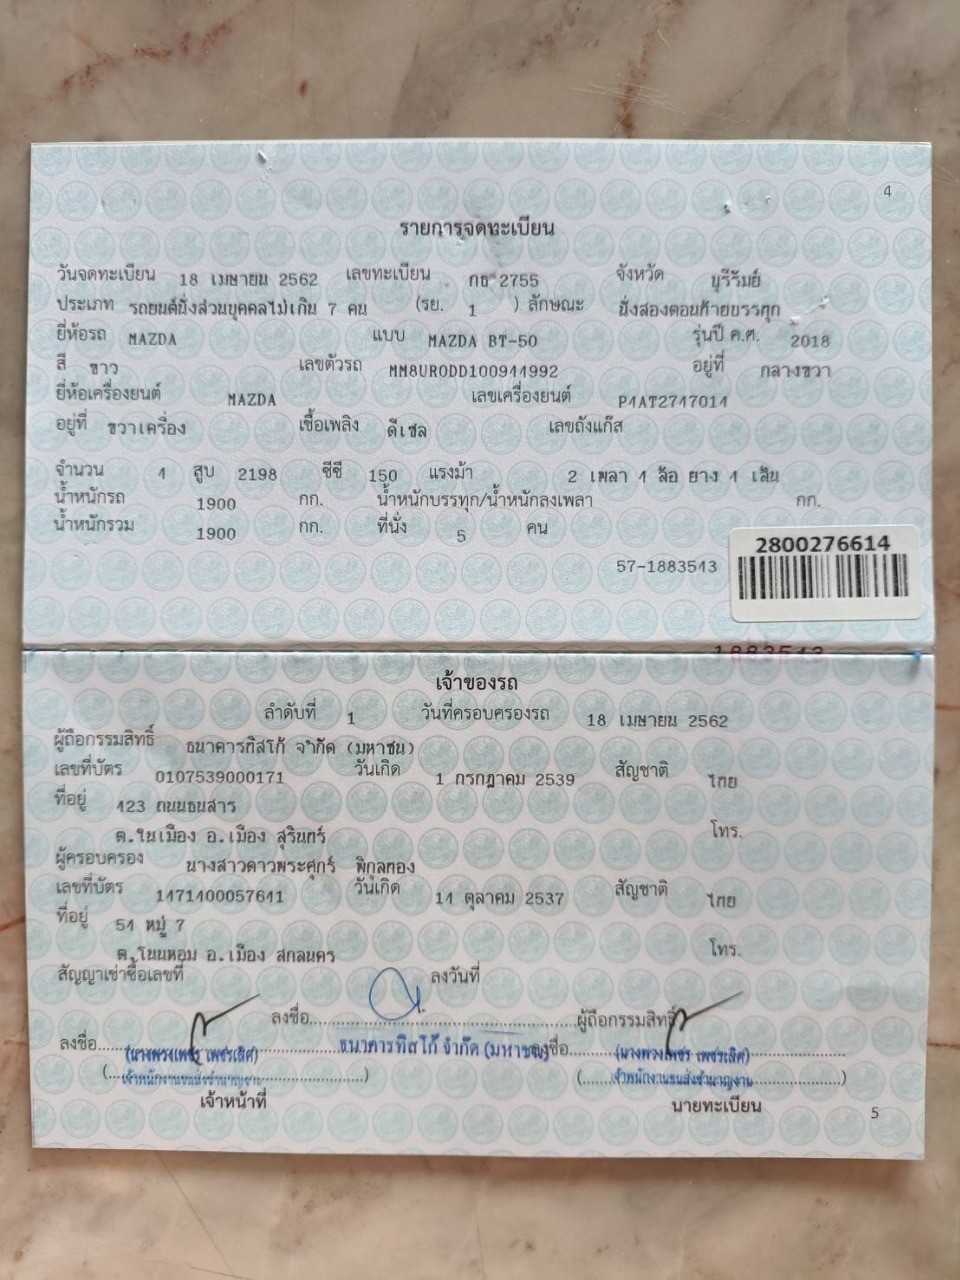 4
รายการจดทะเบียน
วันจดทะเบียน 18 เมษายน 2562 เลขทะเบียน กธ 2755 จังหวัด บุรีรัมย์
ประเภท รถยนต์นั่งส่วนบุคคลไม่เกิน 7 คน (รย. 1 ) ลักษณะ นั่งสองตอนท้ายบรรทุก
ยี่ห้อรถ MAZDA แบบ MAZDA BT-50 รุ่นปี ค.ศ. 2018
สี ขาว เลขตัวรถ MM8URODD100944992 อยู่ที่ กลางขวา
ยี่ห้อเครื่องยนต์ MAZDA เลขเครื่องยนต์ P4AT2747014
อยู่ที่ ขวาเครื่อง เชื้อเพลิง ดีเซล เลขถังแก๊ส
จำนวน 4 สูบ 2198 ซีซี 150 แรงม้า 2 เพลา 4 ล้อ ยาง 4 เส้น
น้ำหนักรถ 1900 กก. น้ำหนักบรรทุก/น้ำหนักลงเพลา กก.
น้ำหนักรวม 1900 กก. ที่นั่ง 5 คน
2800276614
57-1883543
1883543
เจ้าของรถ
ลำดับที่ 1 วันที่ครอบครองรถ 18 เมษายน 2562
ผู้ถือกรรมสิทธิ์ ธนาคารทิสโก้ จำกัด (มหาชน)
เลขที่บัตร 0107539000171 วันเกิด 1 กรกฎาคม 2539 สัญชาติ ไทย
ที่อยู่ 423 ถนนธนสาร
ต.ในเมือง อ.เมือง สุรินทร์ โทร.
ผู้ครอบครอง นางสาวดาวพระศุกร์ พิกุลทอง
เลขที่บัตร 1471400057641 วันเกิด 14 ตุลาคม 2537 สัญชาติ ไทย
ที่อยู่ 54 หมู่ 7
ต.โนนหอม อ.เมือง สกลนคร โทร.
สัญญาเช่าซื้อเลขที่ ลงวันที่
ลงชื่อ ผู้ถือกรรมสิทธิ์
ธนาคารทิสโก้ จำกัด (มหาชน)
ลงชื่อ (นางพวงเพชร เพชรเลิศ) ลงชื่อ (นางพวงเพชร เพชรเลิศ)
(เจ้าพนักงานขนส่งชำนาญงาน) (เจ้าพนักงานขนส่งชำนาญงาน)
เจ้าหน้าที่ นายทะเบียน
5